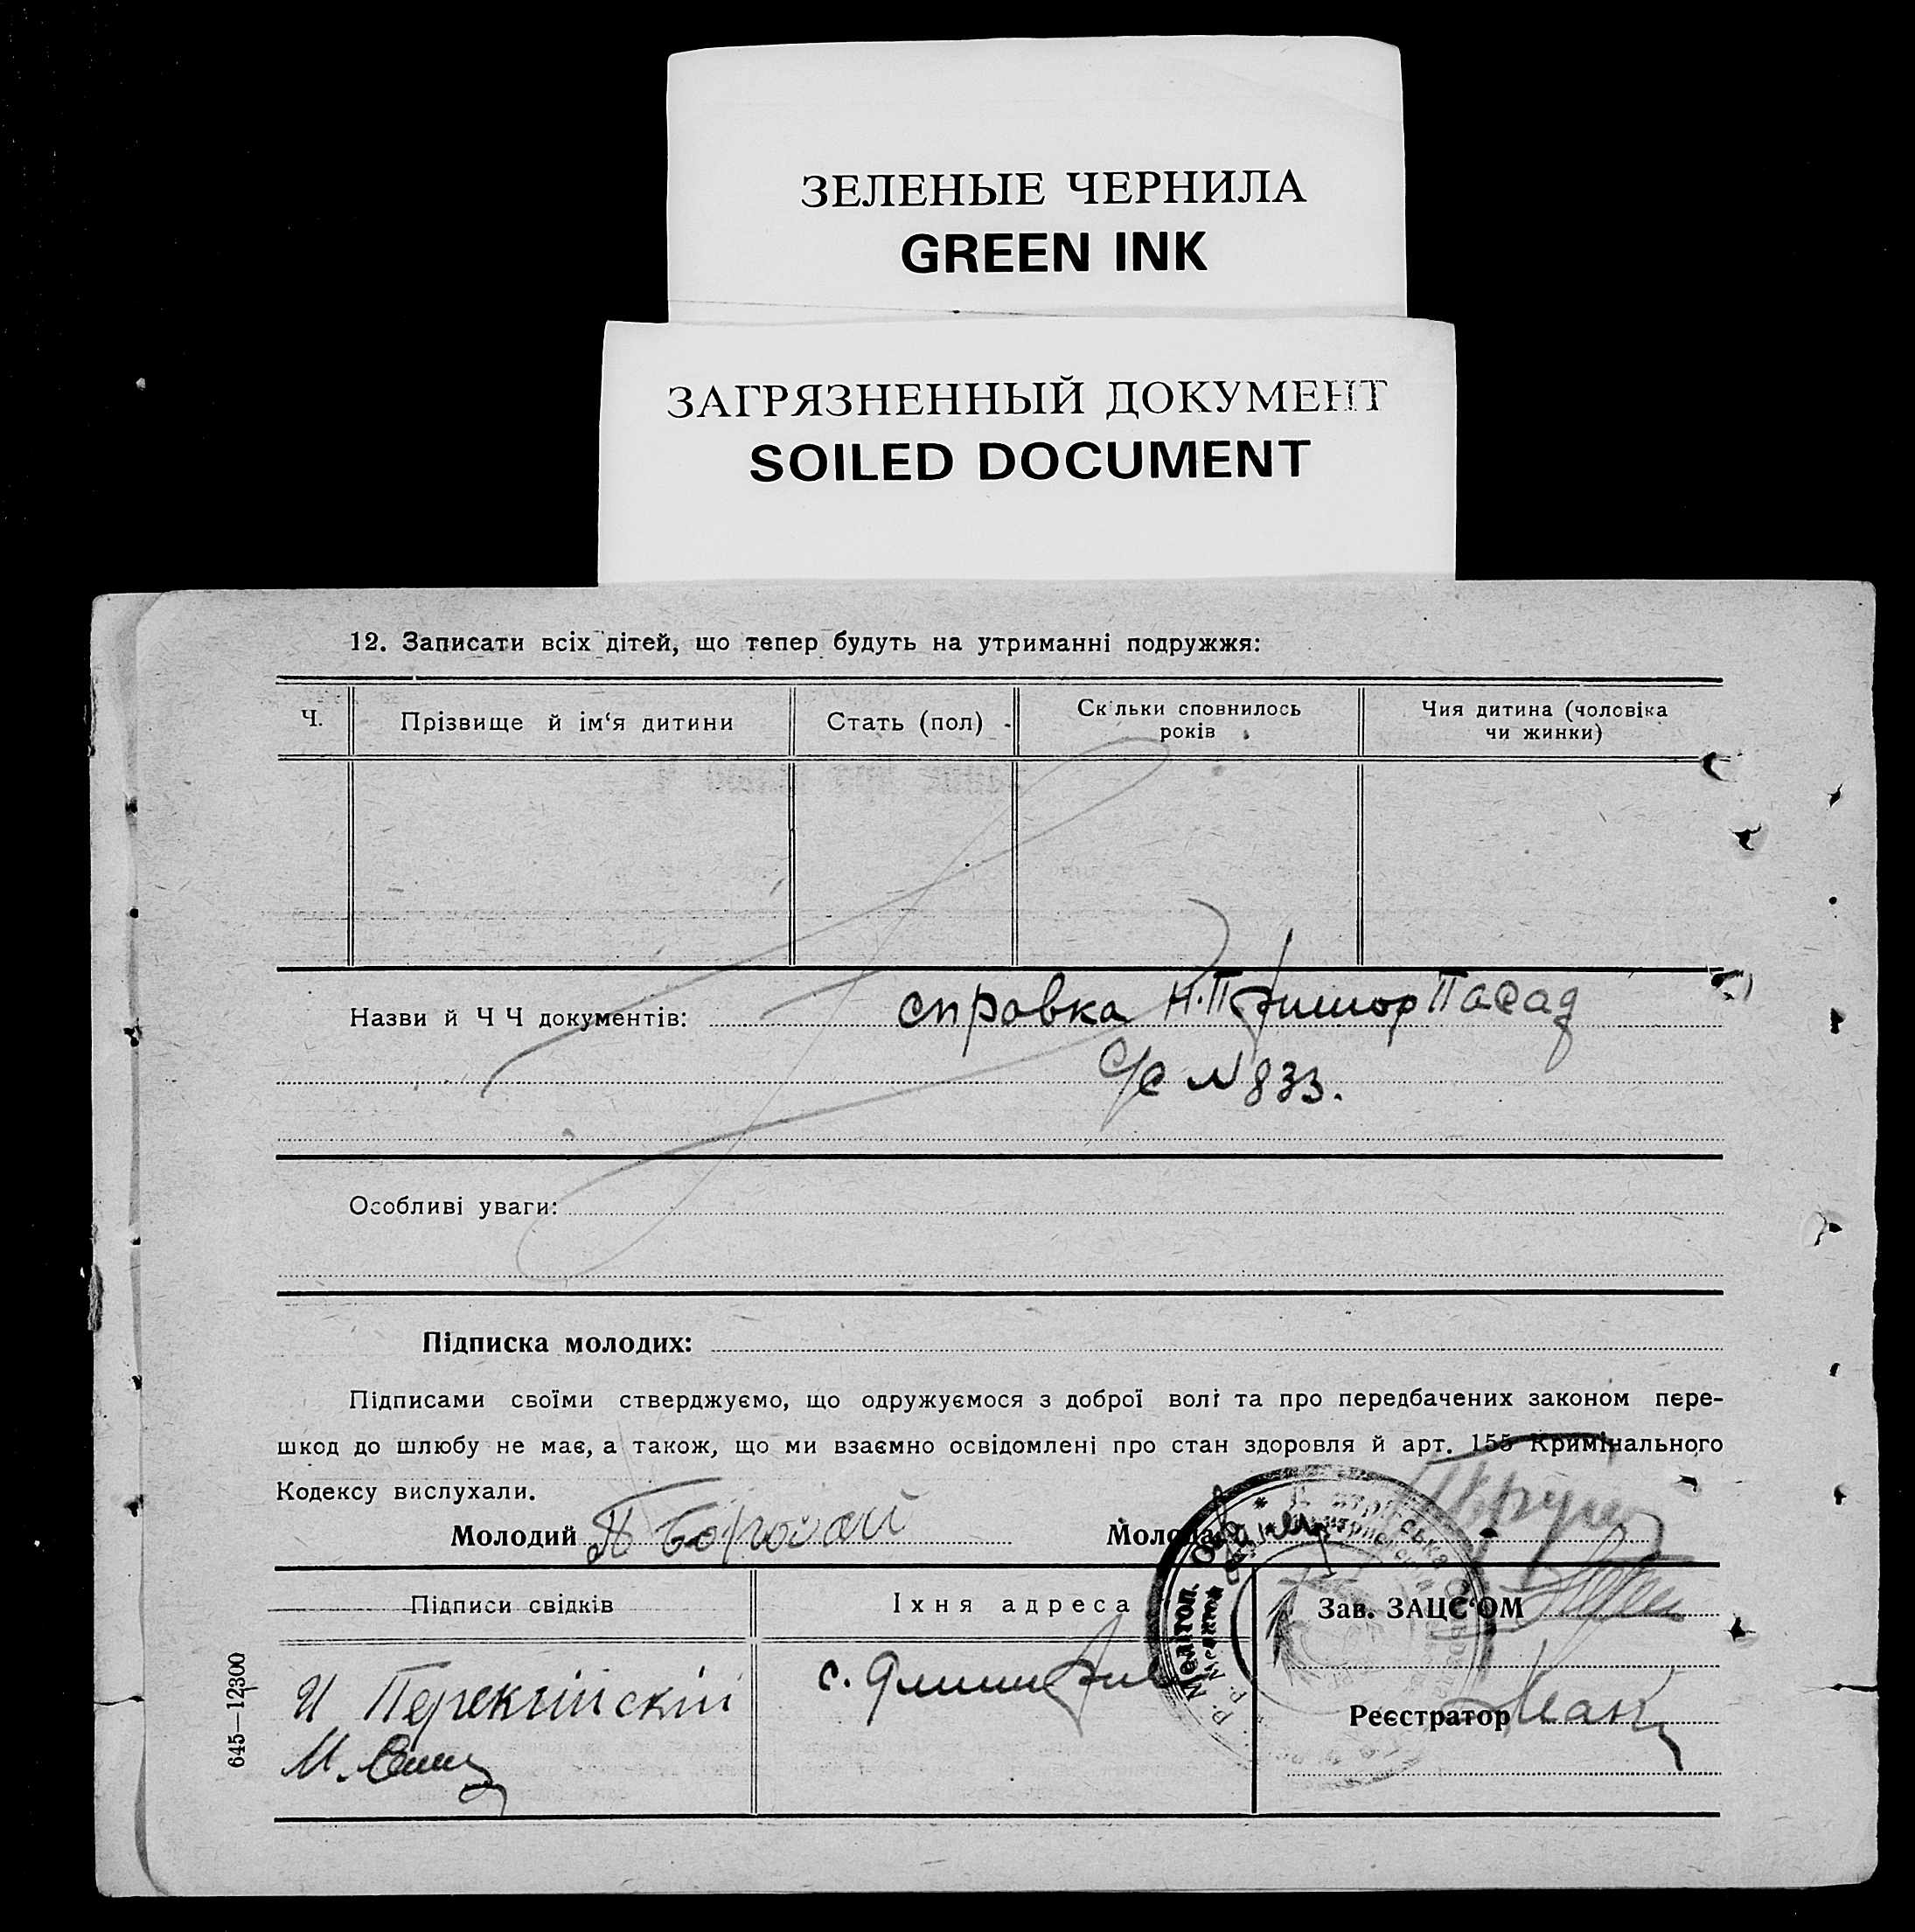 ЗЕЛЕНЫЕ ЧЕРНИЛА
GREEN INK
ЗАГРЯЗНЕННЫЙ ДОКУМЕНТ
SOILED DOCUMENT
12. Записати всіх дітей, що тепер будуть на утриманні подружжя:
Ч.
Прізвище й ім‘я дитини
Стать (пол)
Скільки сповнилось
років
Чия дитина (чоловіка
чи жинки)
Назви й Ч Ч документів: справка
С/с N 833.
Особливі уваги:
Підписка молодих:
Підписами своїми стверджуємо, що одружуємося з доброї волі та про передбачених законом пере-
шкод до шлюбу не має, а також, що ми взаємно освідомлені про стан здоровля й арт. 155 Кримінального
Кодексу вислухали.
Молодий
Молода
Підписи свідків
Їхня адреса
Зав. ЗАЦС‘ОМ
с.
Реєстратор
И
М.
645—12300